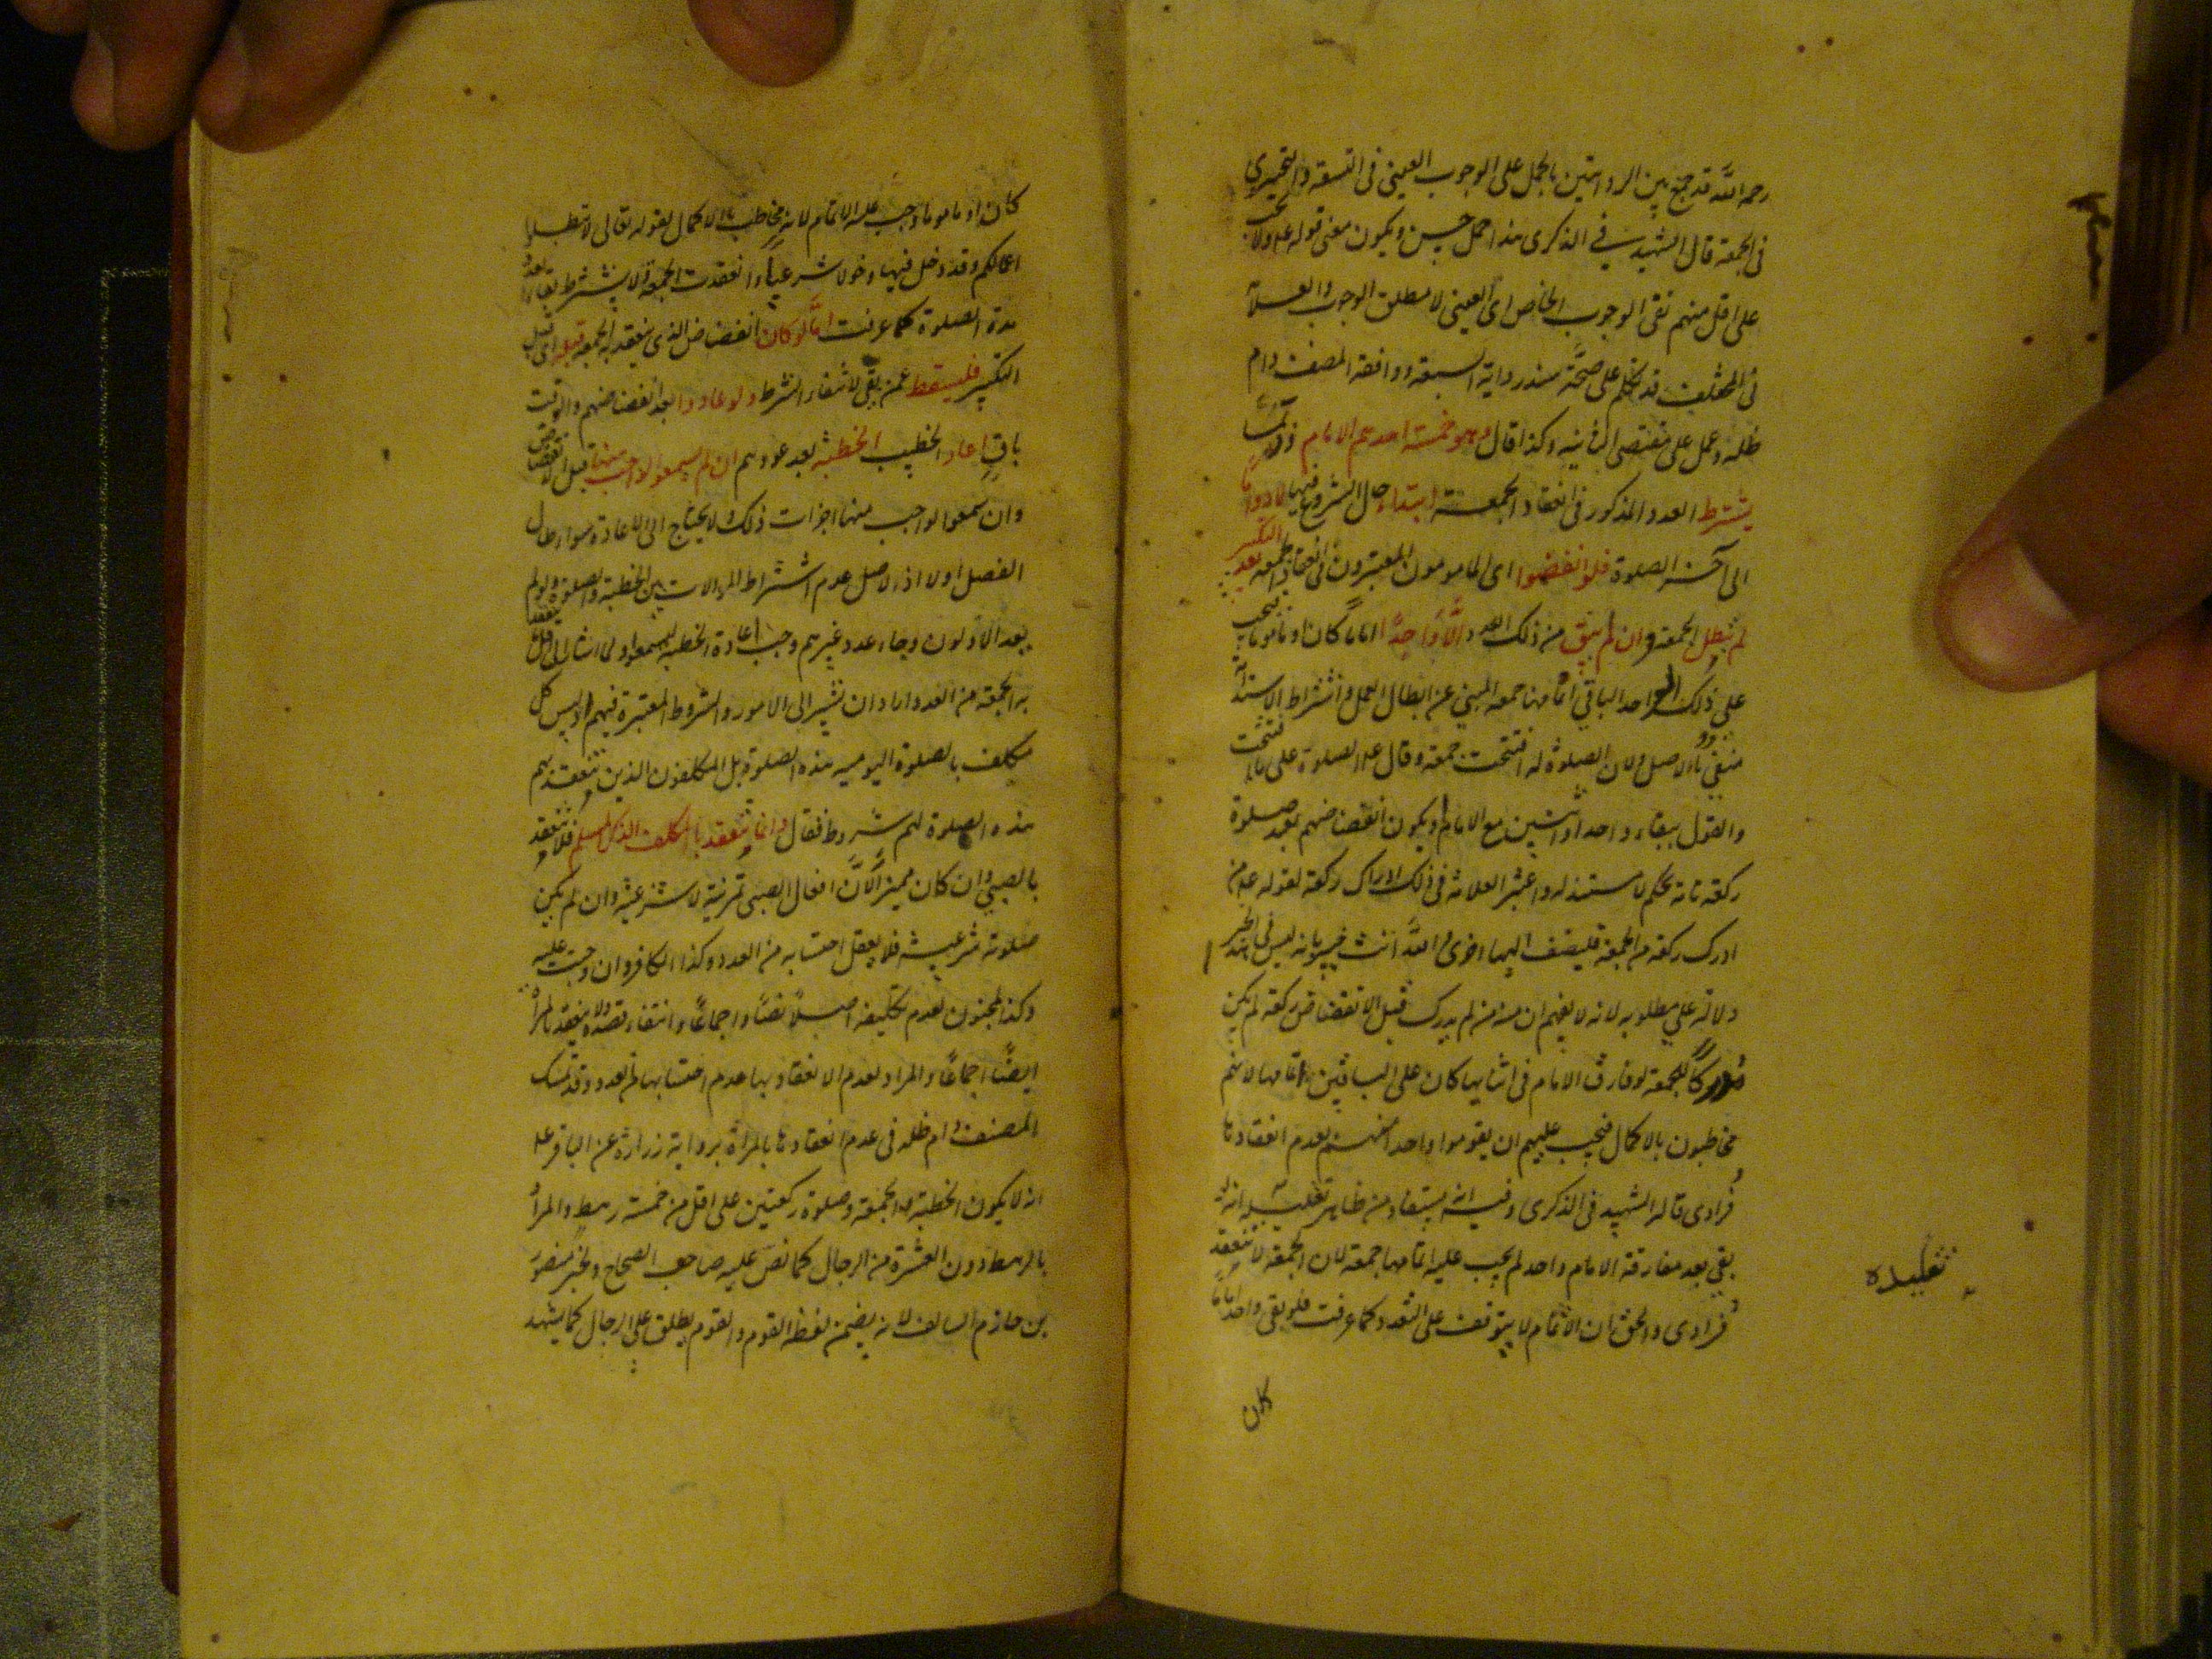 رحمه الله قد جمع بين الروايتين بالحمل على الوجوب العيني في السبعة والتخييري
في الجمعة قال الشهيد في الذكرى هذا حمل حسن ويكون معنى قوله عله ولا تجب
على اقل منهم نفى الوجوب الخاص اى العيني لا مطلق الوجوب والعلامة
في المختلف قد تكلم على صحة سند رواية السبعة ووافقه المصنف دام
ظله وعمل على مقتضى الثانية وكذا قال وهو خمسة احدهم الامام
يشترط العدد المذكور في انعقاد الجمعة ابتداء حال الشروع فيها لا دواما
الى آخر الصلوة فلو انفضوا اى المامومون المعتبرون في انعقاد الجمعه بعد التكبير
لم تبطل الجمعة وان لم يبق من ذلك العدد الا واحدا اماما كان او ماموما فيجب
على ذلك الواحد الباقي اتمامها جمعه للنهي عن ابطال العمل واشتراط الاستدامة
منفي بالاصل ولان الصلوة له افتتحت جمعة وقال عله الصلوة على ما افتتحت
والقول ببقاء واحد او اثنين مع الامام او يكون انفضاضهم بعد صلوة
ركعة تامة تحكم لا مستند له واعتبر العلامة في ذلك ادراك ركعة لقوله عله من
ادرك ركعة من الجمعة فليضف اليها اخرى وانت خبير بانه ليس في الخبر
دلالة على مطلوبه لانه لا يفهم ان منه من لم يدرك قبل الانفضاض ركعة لم يكن
مدركا للجمعة لو فارق الامام في اثنايها كان على الباقين اتمامها لانهم
مخاطبون بالاكمال فيجب عليهم ان يقوموا واحدا منهم لعدم انعقادها
فرادى قاله الشهيد في الذكرى وفيه انه يستفاد من ظاهر تعليله انه لو
بقي بعد مفارقة الامام واحد لم يجب عليه اتمامها جمعة لان الجمعة لا تنعقد
فرادى والحق ان الاتمام لا يتوقف على التعدد كما عرفت فلو بقى واحد اماما
تعليله
كان
كان او ماموما وجب عله الاتمام لانه مخاطب بالاكمال لقوله تعالى لا تبطلوا
اعمالكم وقد دخل فيها دخولا شرعيا وانعقدت الجمعة ولا يشترط بقاء العدد
مدة الصلوة كما عرفت اما لو كان انفضاض الذى ينعقد به الجمعه قبله اى قبل
التكبير فليسقط عمن بقى لانتفاء الشرط ولو عادوا بعد انفضاضهم والوقت
باق اعاد الخطيب الخطبة بعد عودهم ان لم يسمعوا الواجب منها قبل الانفضاض
وان سمعوا الواجب منها اجزات ذلك ولا يحتاج الى الاعادة سواء طال
الفصل او لا اذ الاصل عدم اشتراط الموالات بين الخطبة والصلوة ولو لم
يعد الاولون وجاء عدد غيرهم وجب اعادة الخطبة ليسمعوا ولما اشار الى اقل ما ينعقد
به الجمعة من العدد اراد ان يشير الى الامور والشروط المعتبرة فيهم اذ ليس كل
مكلف بالصلوة اليوميه هذه الصلوة بل المكلفون الذين تنعقد بهم
هذه الصلوة لهم شروط فقال وانما تنعقد بالمكلف الذكر المسلم فلا تنعقد
بالصبي وان كان مميزا لان افعال الصبى تمرينية لا شرعية وان لم يكن
صلوته شرعية فلا يعقل احتسابه من العدد وكذا الكافر وان وجبت عليه
وكذا المجنون لعدم تكليفه اصلا نصا واجماعا وانتفاء قصده ولا ينعقد بالمرأة
ايضا اجماعا والمراد بعدم الانعقاد بها عدم احتسابها في العدد وقد تمسك
المصنف دام ظله في عدم انعقادها بالمراة برواية زرارة عن الباقر عله
انه لا يكون الخطبة والجمعة وصلوة ركعتين على اقل من خمسة رهط والمراد
بالرهط دون العشرة من الرجال كما نص عليه صاحب الصحاح ولخبر منصور
بن حازم السالف لانه يضمن لفظ القوم والقوم يطلق على الرجال كما يشهد